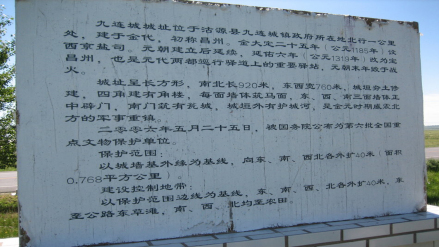 九连城城址位于沽源县九连城镇政府所在地北行一公里
处，建于金代，初称昌州，金大定二十五年（公元1185年）设
西京盐司。元朝建立后建绕，延佑六年（公元1319年）改为宝
昌州，也是元代两都巡行驿道上的重要驿站，元朝末年败于战
火。
城址呈长方形，南北长920米，东西宽760米，城垣夯土修
建，四角建有角楼，每面墙体筑马面，东、西、南三面墙体正
中辟门，南门筑有瓮城，城垣外有护城河，是金元时期威震北
方的军事重镇。
二〇〇六年五月二十五日，被国务院公布为第六批全国重
点文物保护单位。
保护范围：
以城墙基外缘为基线，向东、南、西北各外扩40米（面积
0.768平方公里）
建设控制地带：
以保护范围边线为基线，东、南、西、北各外扩40米，东
至公路东草滩，南、西、北均至农田。